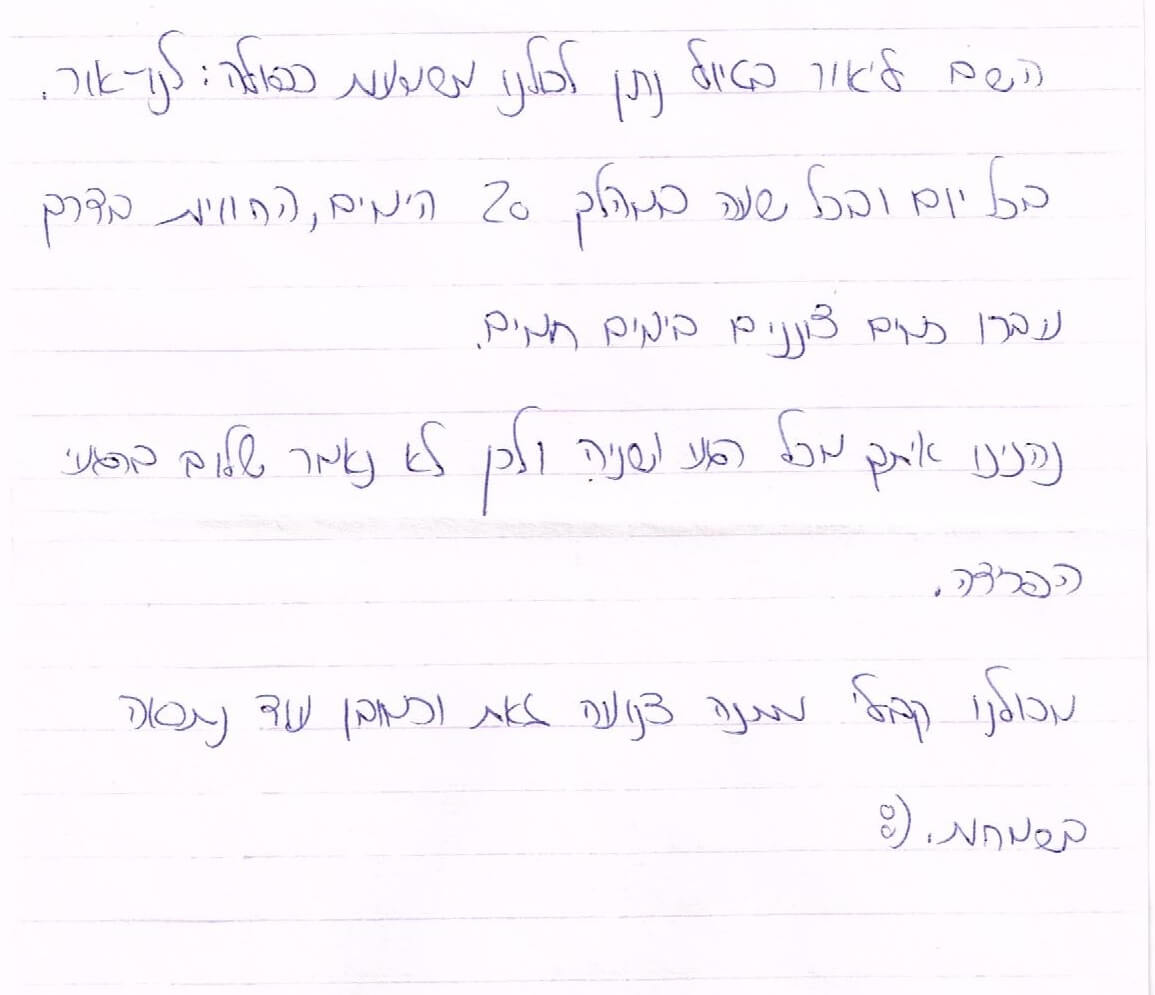 השם ליאור בטיול נתן לכולנו משמעות כפולה: לנו-אור.
בכל יום ובכל שעה במהלך 20 הימים, החוויות בדרך
עברו כמים צוננים בימים חמים.
נהנינו איתך מכל רגע ושניה ולכן לא נאמר שלום ברגעי
הפרידה.
מכולנו קבלי מתנה צנועה זאת וכמובן עוד נתראה
בשמחות. (: